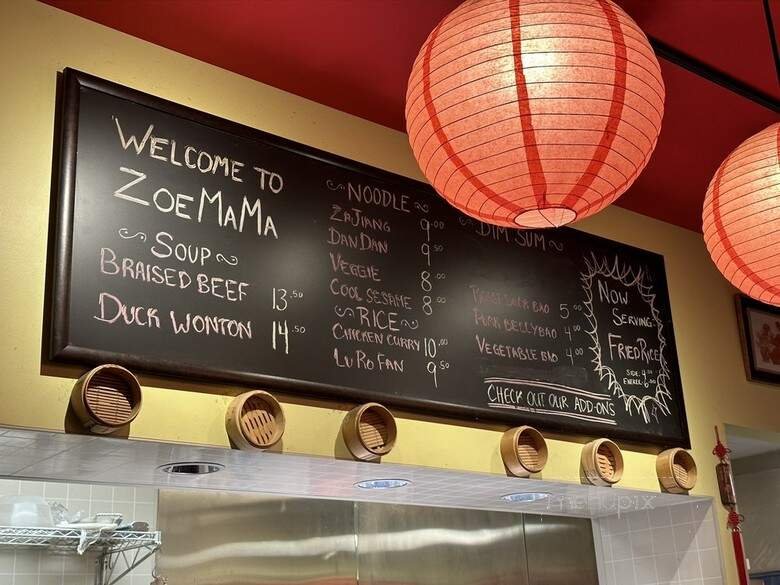 WELCOME TO
ZOE MAMA
SOUP
BRAISED BEEF 13.50
DUCK WONTON 14.50
NOODLE
ZAJIANG 9.00
DANDAN 9.50
VEGGIE 8.00
COOL SESAME 8.00
RICE
CHICKEN CURRY 10.00
LU RO FAN 9.50
DIM SUM
BAO 5.00
PORK BELLY BAO 4.00
VEGETABLE BAO 4.00
CHECK OUT OUR ADD-ONS
NOW
SERVING:
FRIED RICE
SIDE: 4.00
ENTREE: 6.00
menupix